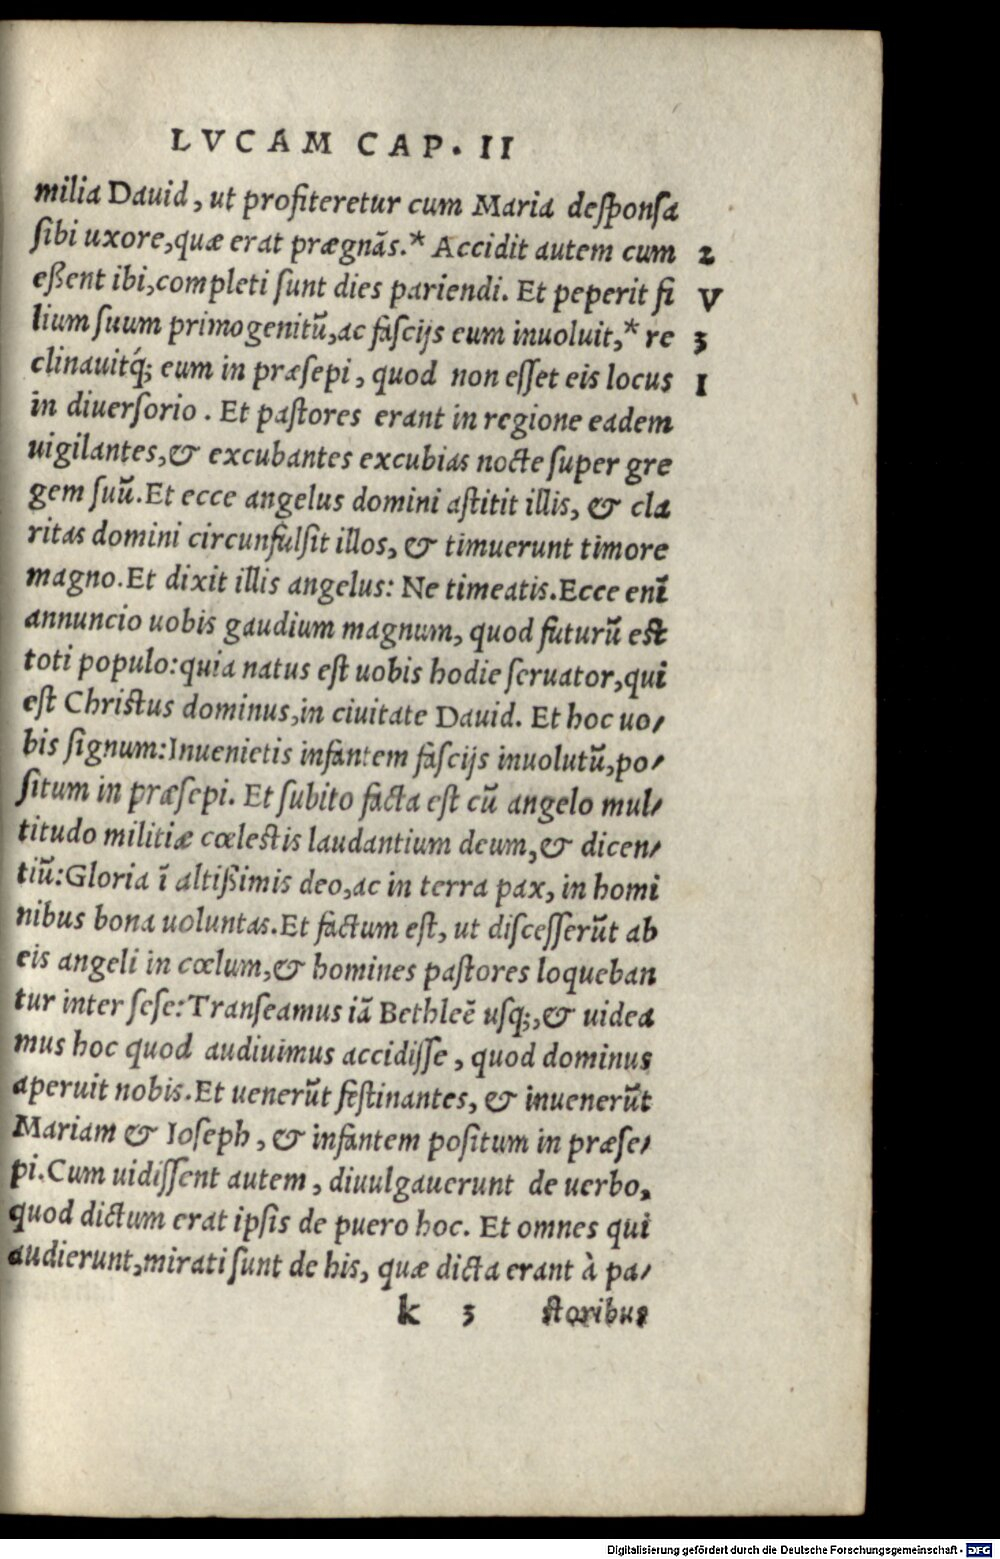 LVCAM CAP. II
milia Dauid, ut profiteretur cum Maria desponsa
sibi uxore, quæ erat prægnãs.* Accidit autem cum 2
eßent ibi, completi sunt dies pariendi. Et peperit fi V
lium suum primogenitũ, ac fascijs eum inuoluit,* re 3
clinauitq́; eum in præsepi, quod non esset eis locus I
in diuersorio. Et pastores erant in regione eadem
uigilantes, & excubantes excubias nocte super gre
gem suũ. Et ecce angelus domini astitit illis, & cla
ritas domini circunfulsit illos, & timuerunt timore
magno. Et dixit illis angelus: Ne timeatis. Ecce enĩ
annuncio uobis gaudium magnum, quod futurũ est
toti populo: quia natus est uobis hodie seruator, qui
est Christus dominus, in ciuitate Dauid. Et hoc uo/
bis signum: Inuenietis infantem fascijs inuolutũ, po/
situm in præsepi. Et subito facta est cũ angelo mul/
titudo militiæ cœlestis laudantium deum, & dicen/
tiũ: Gloria ĩ altißimis deo, ac in terra pax, in homi
nibus bona uoluntas. Et factum est, ut discesserũt ab
eis angeli in cœlum, & homines pastores loqueban
tur inter sese: Transeamus iã Bethleẽ usq;, & uidea
mus hoc quod audiuimus accidisse, quod dominus
aperuit nobis. Et uenerũt festinantes, & inuenerũt
Mariam & Ioseph, & infantem positum in præse/
pi. Cum uidissent autem, diuulgauerunt de uerbo,
quod dictum erat ipsis de puero hoc. Et omnes qui
audierunt, mirati sunt de his, quæ dicta erant à pa/
k 3 storibus
Digitalisierung gefördert durch die Deutsche Forschungsgemeinschaft - DFG